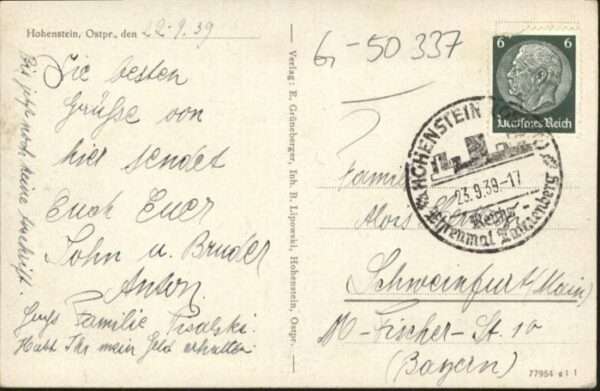 Hohenstein, Ostpr., den 22.9.39
Die besten
Grüße von
hier sendet
Euch Euer
Sohn u. Bruder
Anton.
Gruß Familie
Habt Ihr mein Geld erhalten
Bis jetzt noch keine
Verlag: E. Grüneberger, Inh. B. Lipowski, Hohenstein, Ostpr.
G-50 337
6 6
Deutsches Reich
HOHENSTEIN
23.9.39-17
Reichs-
Ehrenmal Tannenberg
Familie
Alois
Schweinfurt (Main)
M-Fischer-St. 10
(Bayern)
77954